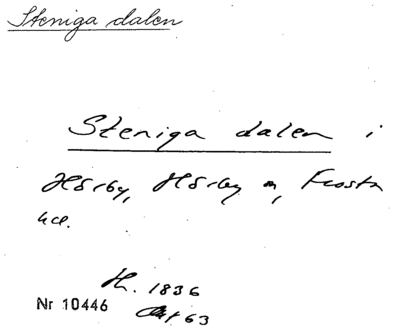 Steniga dalen
Steniga dalen i
Hörby, Hörby sn, Frosta
hd.
H. 1836
Nr 10446
Akt 63